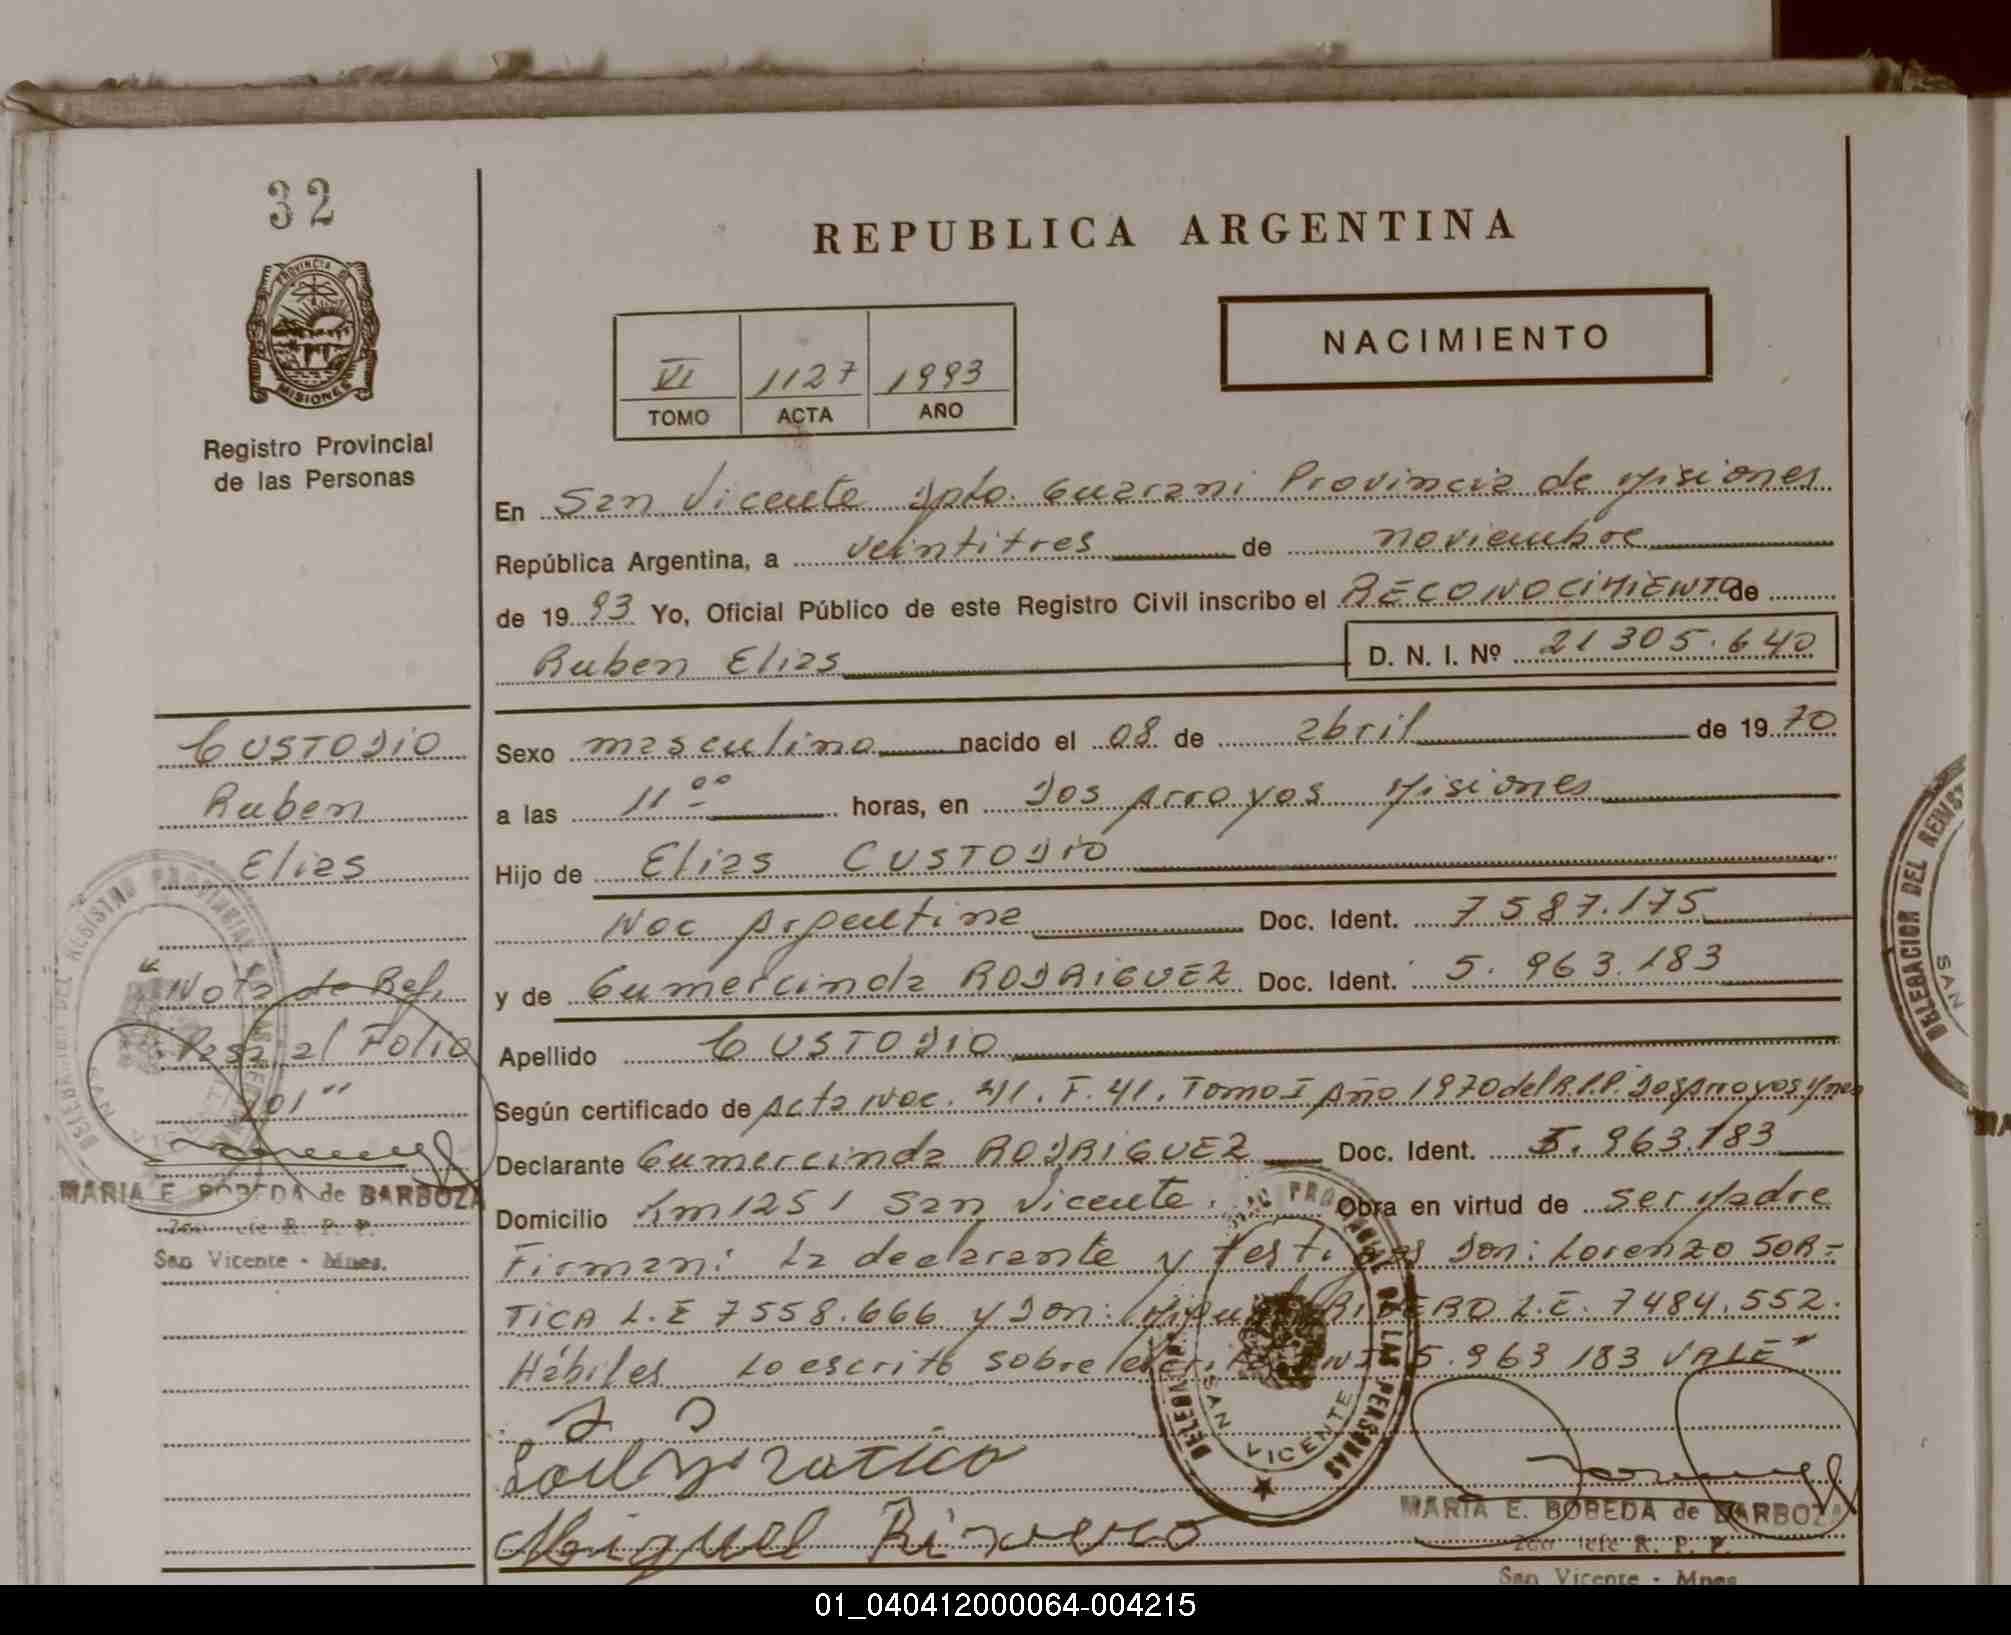 32
PROVINCIA DE
MISIONES
Registro Provincial
de las Personas
REPUBLICA ARGENTINA
NACIMIENTO
VI 1127 1993
TOMO ACTA AÑO
En San Vicente Dpto. Guarani Provincia de Misiones
República Argentina, a veintitres de noviembre
de 1993 Yo, Oficial Público de este Registro Civil inscribo el RECONOCIMIENTO de
Ruben Elias D. N. I. Nº 21 305.640
Sexo masculino nacido el 08 de abril de 1970
a las 11 ºº horas, en Dos Arroyos Misiones
Hijo de Elias CUSTODIO
Nac Argentina Doc. Ident. 7587.175
y de Gumercinda RODRIGUEZ Doc. Ident. 5.963.183
Apellido CUSTODIO
Según certificado de Acta Nac. 41. F. 41. Tomo I Año 1970 del R.P.P. Dos Arroyos Mnes
Declarante Gumercinda RODRIGUEZ Doc. Ident. 5.963.183
Domicilio Km 1251 San Vicente. Obra en virtud de ser Madre
Firman: La declarante y testigos Don: Lorenzo SOR=
TICA L.E 7558.666 y Don: Miguel RIVERO L.E. 7484.552.
Hábiles Lo escrito sobre escrito DNI 5.963 183 VALE"
Miguel Rivero
DELEGACION DEL REGISTRO PROVINCIAL DE LAS PERSONAS
SAN VICENTE
MARIA E. BOBEDA de BARBOZA
2do Jefe R. P. P.
San Vicente - Mnes
CUSTODIO
Ruben
Elias
"Nota de Ref.
Pasa al Folio
201"
MARIA E. BOBEDA de BARBOZA
2do Jefe R. P. P.
San Vicente - Mnes.
DELEGACION DEL REGIST
SAN
MA
01_040412000064-004215